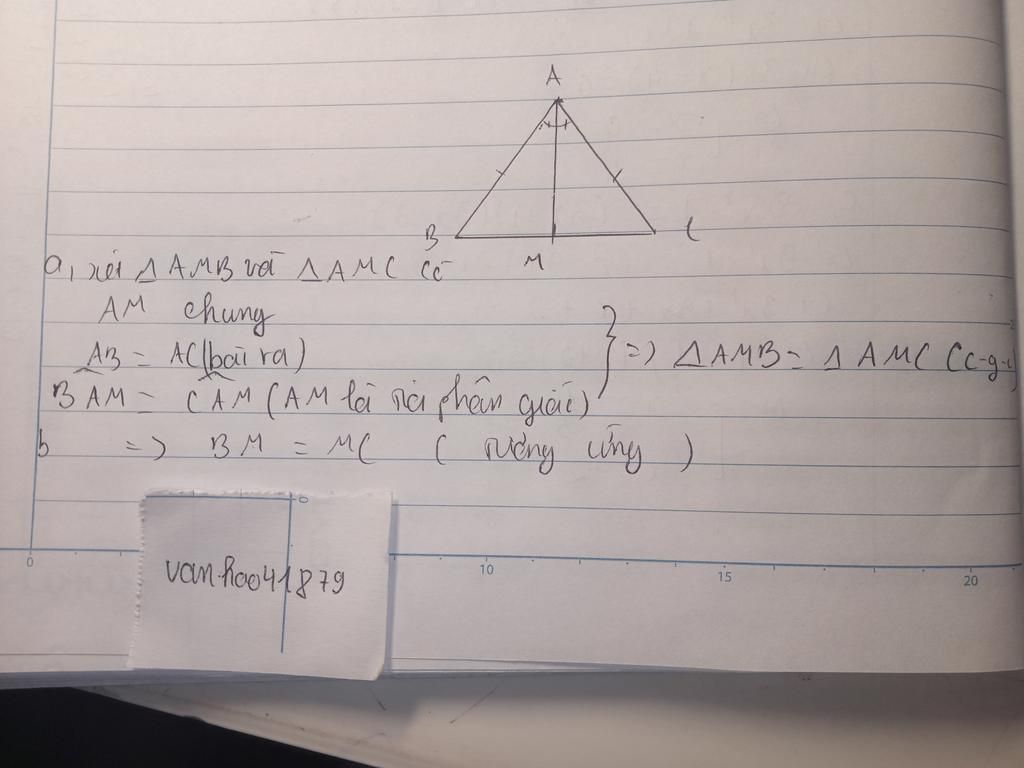 A
B
C
M
a, xét △AMB và △AMC có
AM chung
AB = AC (bài ra)
BAM = CAM (AM là tia phân giác)
} => △AMB = △AMC (c-g-c)
b => BM = MC ( tương ứng )
0
10
15
20
0
vanhoo41879